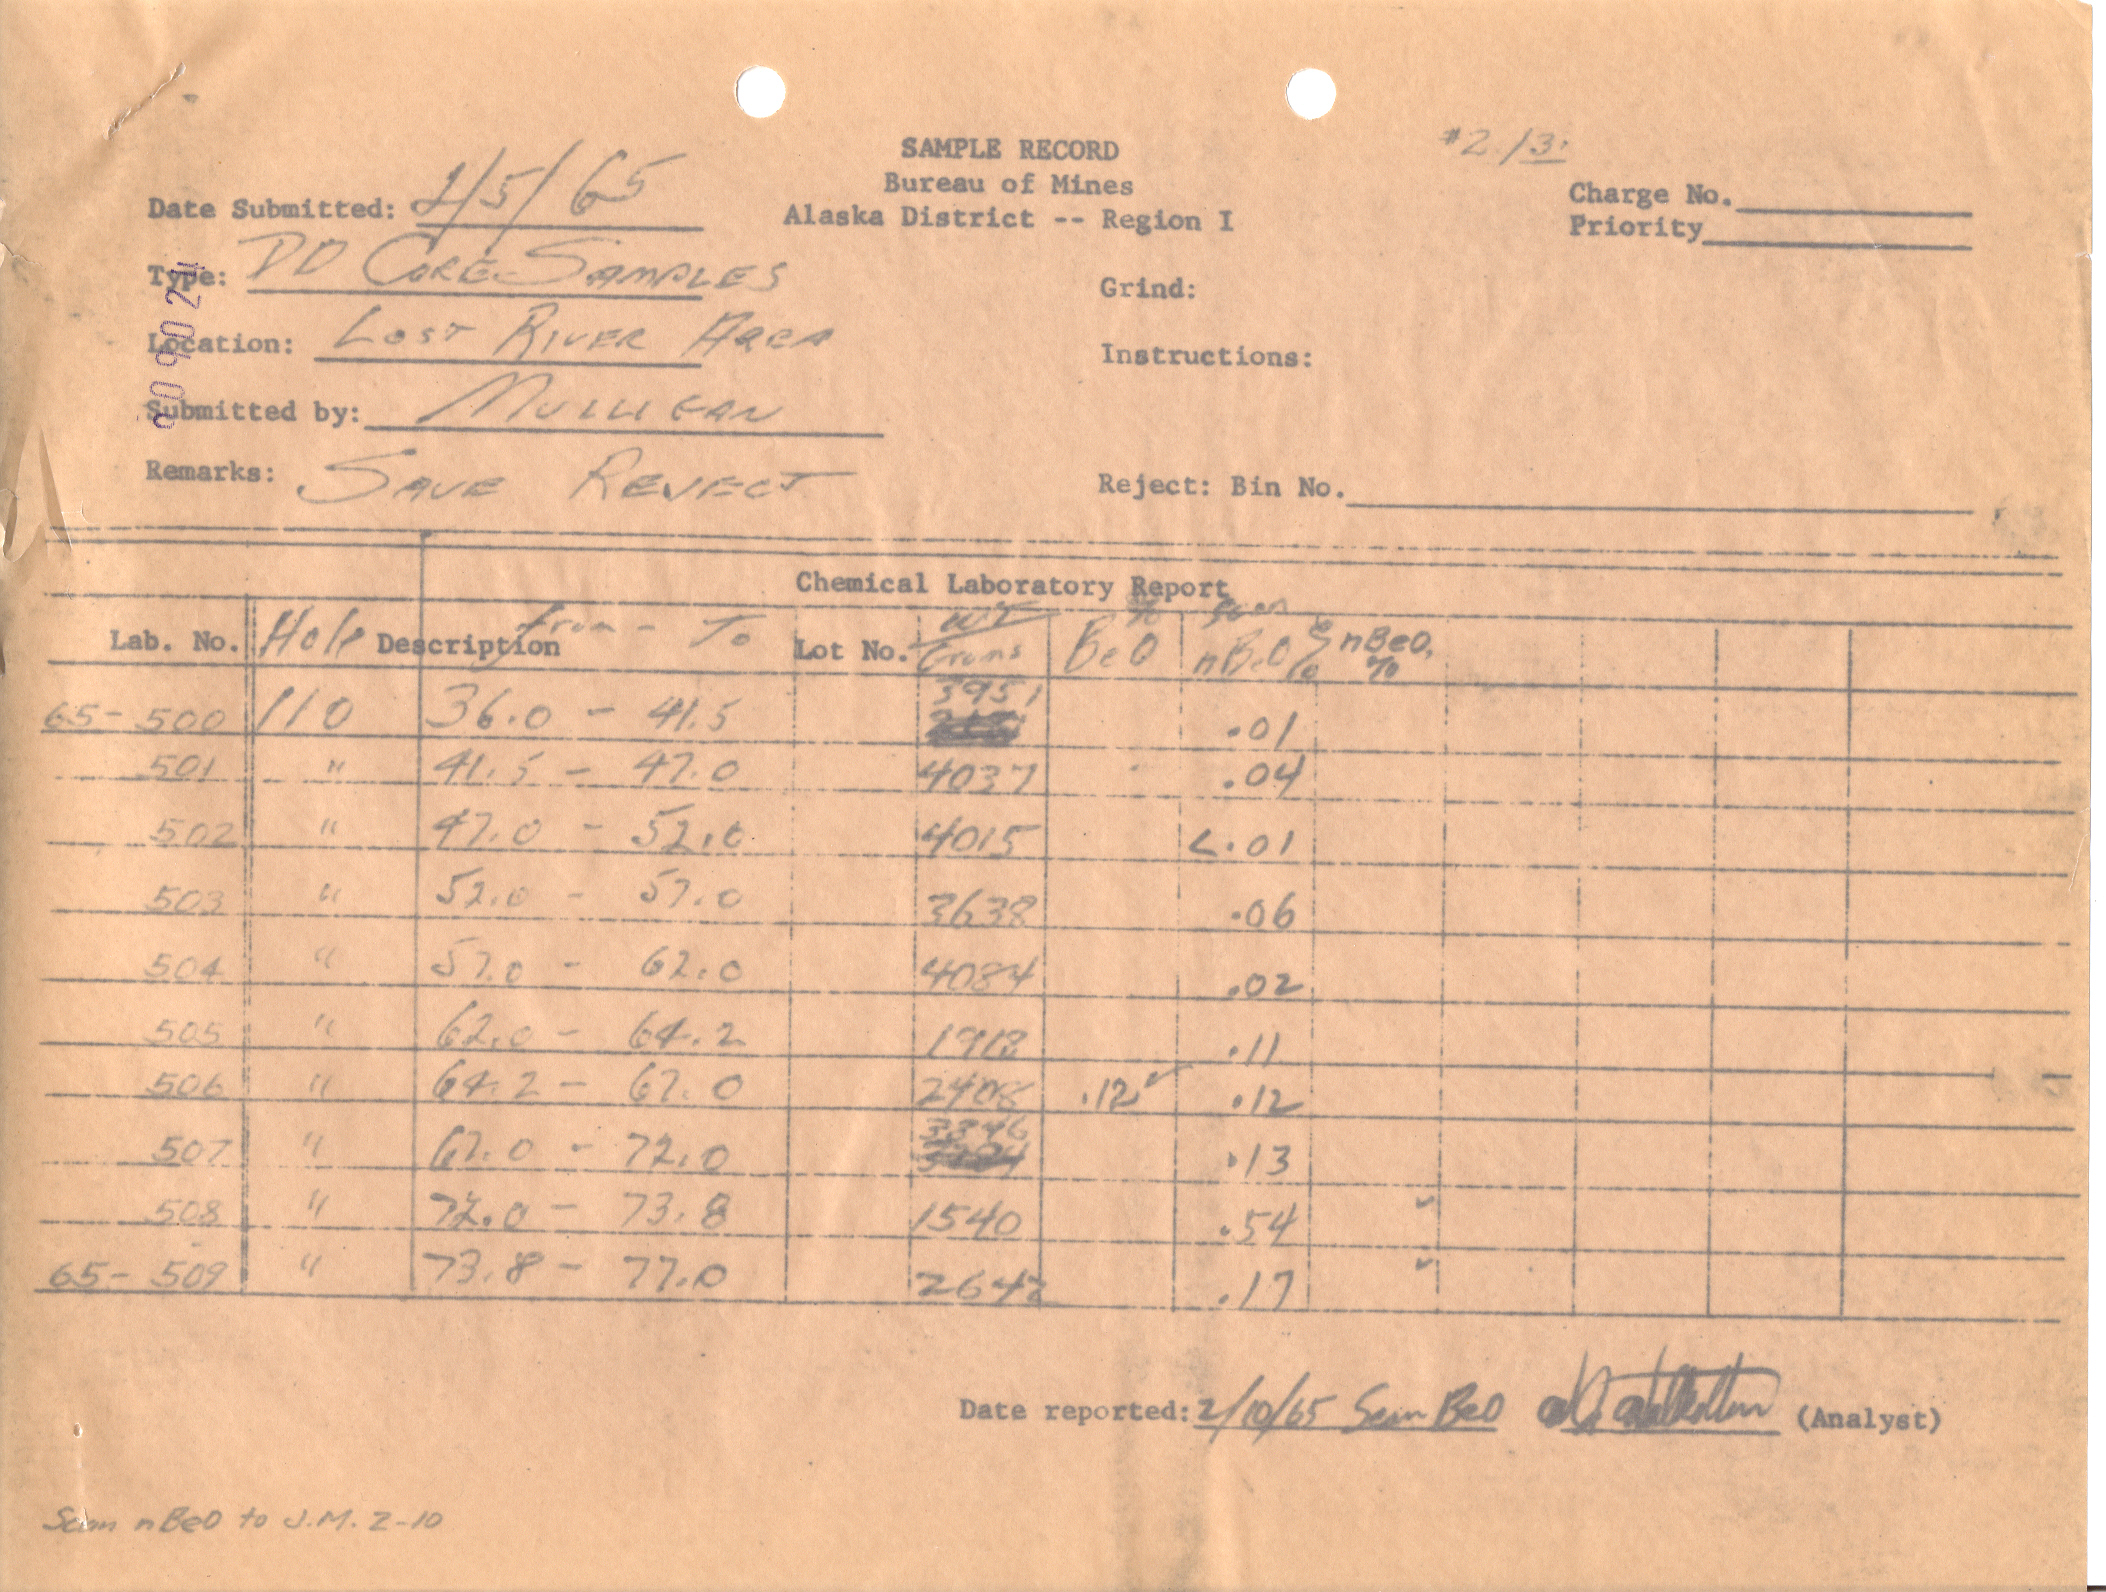 #2./3.
SAMPLE RECORD
Bureau of Mines
Alaska District -- Region I
Charge No.
Priority
Date Submitted: 2/5/65
Type: DD CORE SAMPLES
Grind:
Location: LOST RIVER AREA
Instructions:
Submitted by: MULLIGAN
Remarks: SAVE REJECT
Reject: Bin No.
Chemical Laboratory Report
Lab. No. Hole Description From - To Lot No. WT Grams % BeO Scan nBeO % nBeO %
65- 500 110 36.0 - 41.5 3951 .01
501 " 41.5 - 47.0 4037 .04
502 " 47.0 - 52.0 4015 <.01
503 " 52.0 - 57.0 3638 .06
504 " 57.0 - 62.0 4084 .02
505 " 62.0 - 64.2 1918 .11
506 " 64.2 - 67.0 2408 .12✓ .12
507 " 67.0 - 72.0 3346 .13
508 " 72.0 - 73.8 1540 .54 ✓
65- 509 " 73.8 - 77.0 2642 .17 ✓
Date reported: 2/10/65 Scan BeO (Analyst)
Scan nBeO to J.M. 2-10